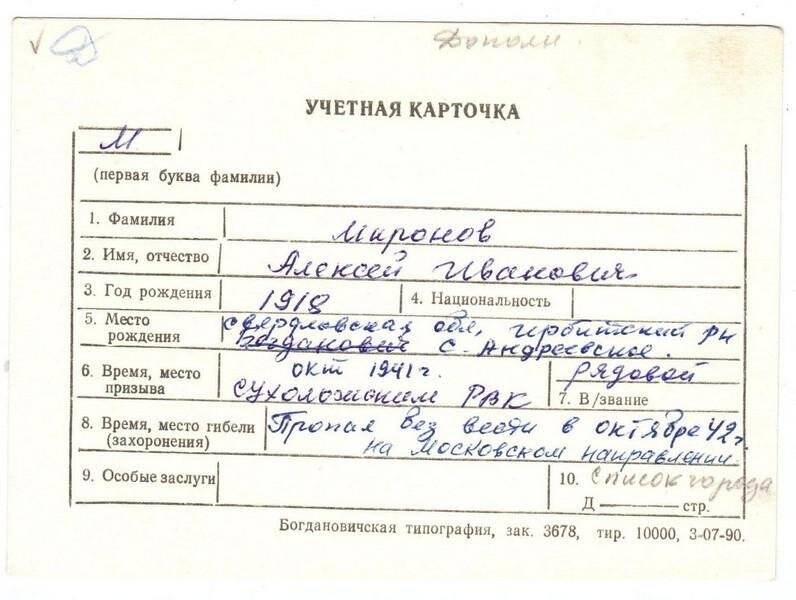 Дополн.
УЧЕТНАЯ КАРТОЧКА
М
(первая буква фамилии)
1. Фамилия Миронов
2. Имя, отчество Алексей Иванович
3. Год рождения 1918 4. Национальность
5. Место рождения свердловская обл, ирбитский рн
с. Андреевское.
6. Время, место призыва окт 1941 г.
сухоложским РВК
рядовой
7. В/звание
8. Время, место гибели (захоронения) Пропал без вести в октябре 42 г.
на московском направлении.
9. Особые заслуги
10. Список города
Д ——— стр.
Богдановичская типография, зак. 3678, тир. 10000, 3-07-90.